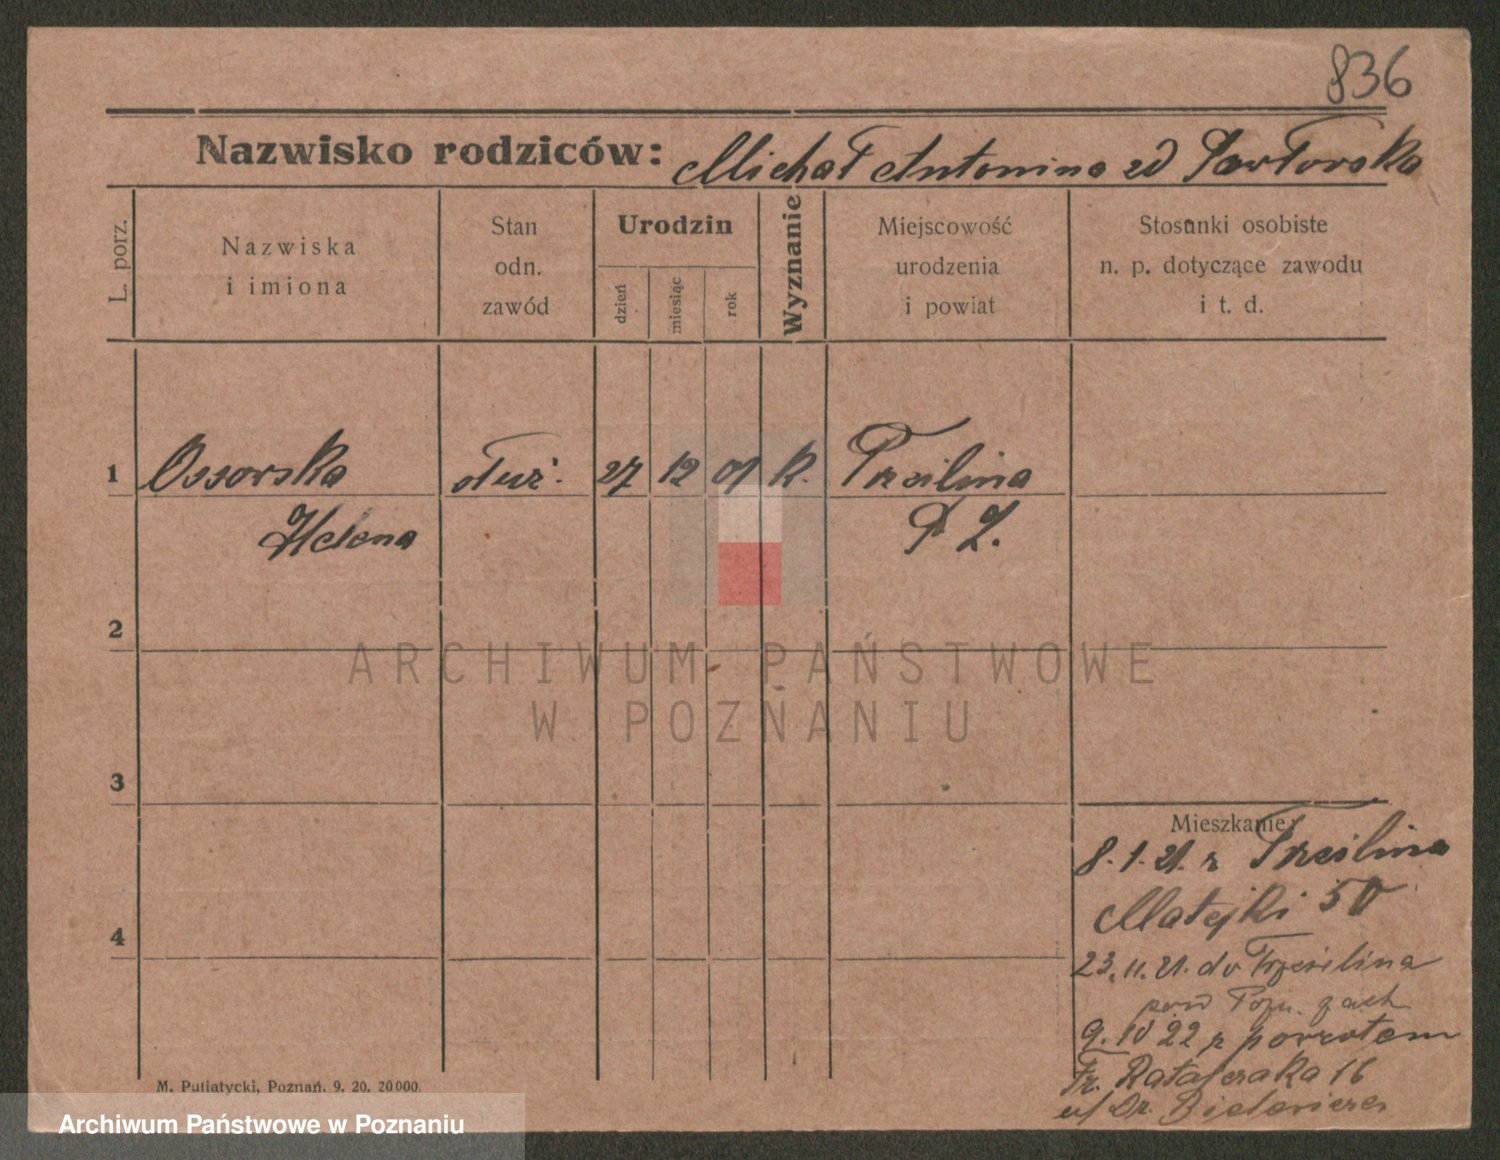 836
Nazwisko rodziców: Michał Antonina zd
L. porz.
Nazwiska
i imiona
Stan
odn.
zawód
Urodzin
dzień
miesiąc
rok
Wyznanie
Miejscowość
urodzenia
i powiat
Stosunki osobiste
n. p. dotyczące zawodu
i t. d.
1 Ossorska służ. 27 12 01 k. Trzcilina
Helena P Z.
2
ARCHIWUM PAŃSTWOWE
W POZNANIU
3
Mieszkanie:
8.1.21. z Trzcilina
Matejki 50
4
23.11.21. do Trzcielina
pow Pozn. zach
9. 10 22 z powrotem
Fr. Ratajczaka 16
u/ Dr.
M. Putiatycki, Poznań. 9. 20. 20000.
Archiwum Państwowe w Poznaniu